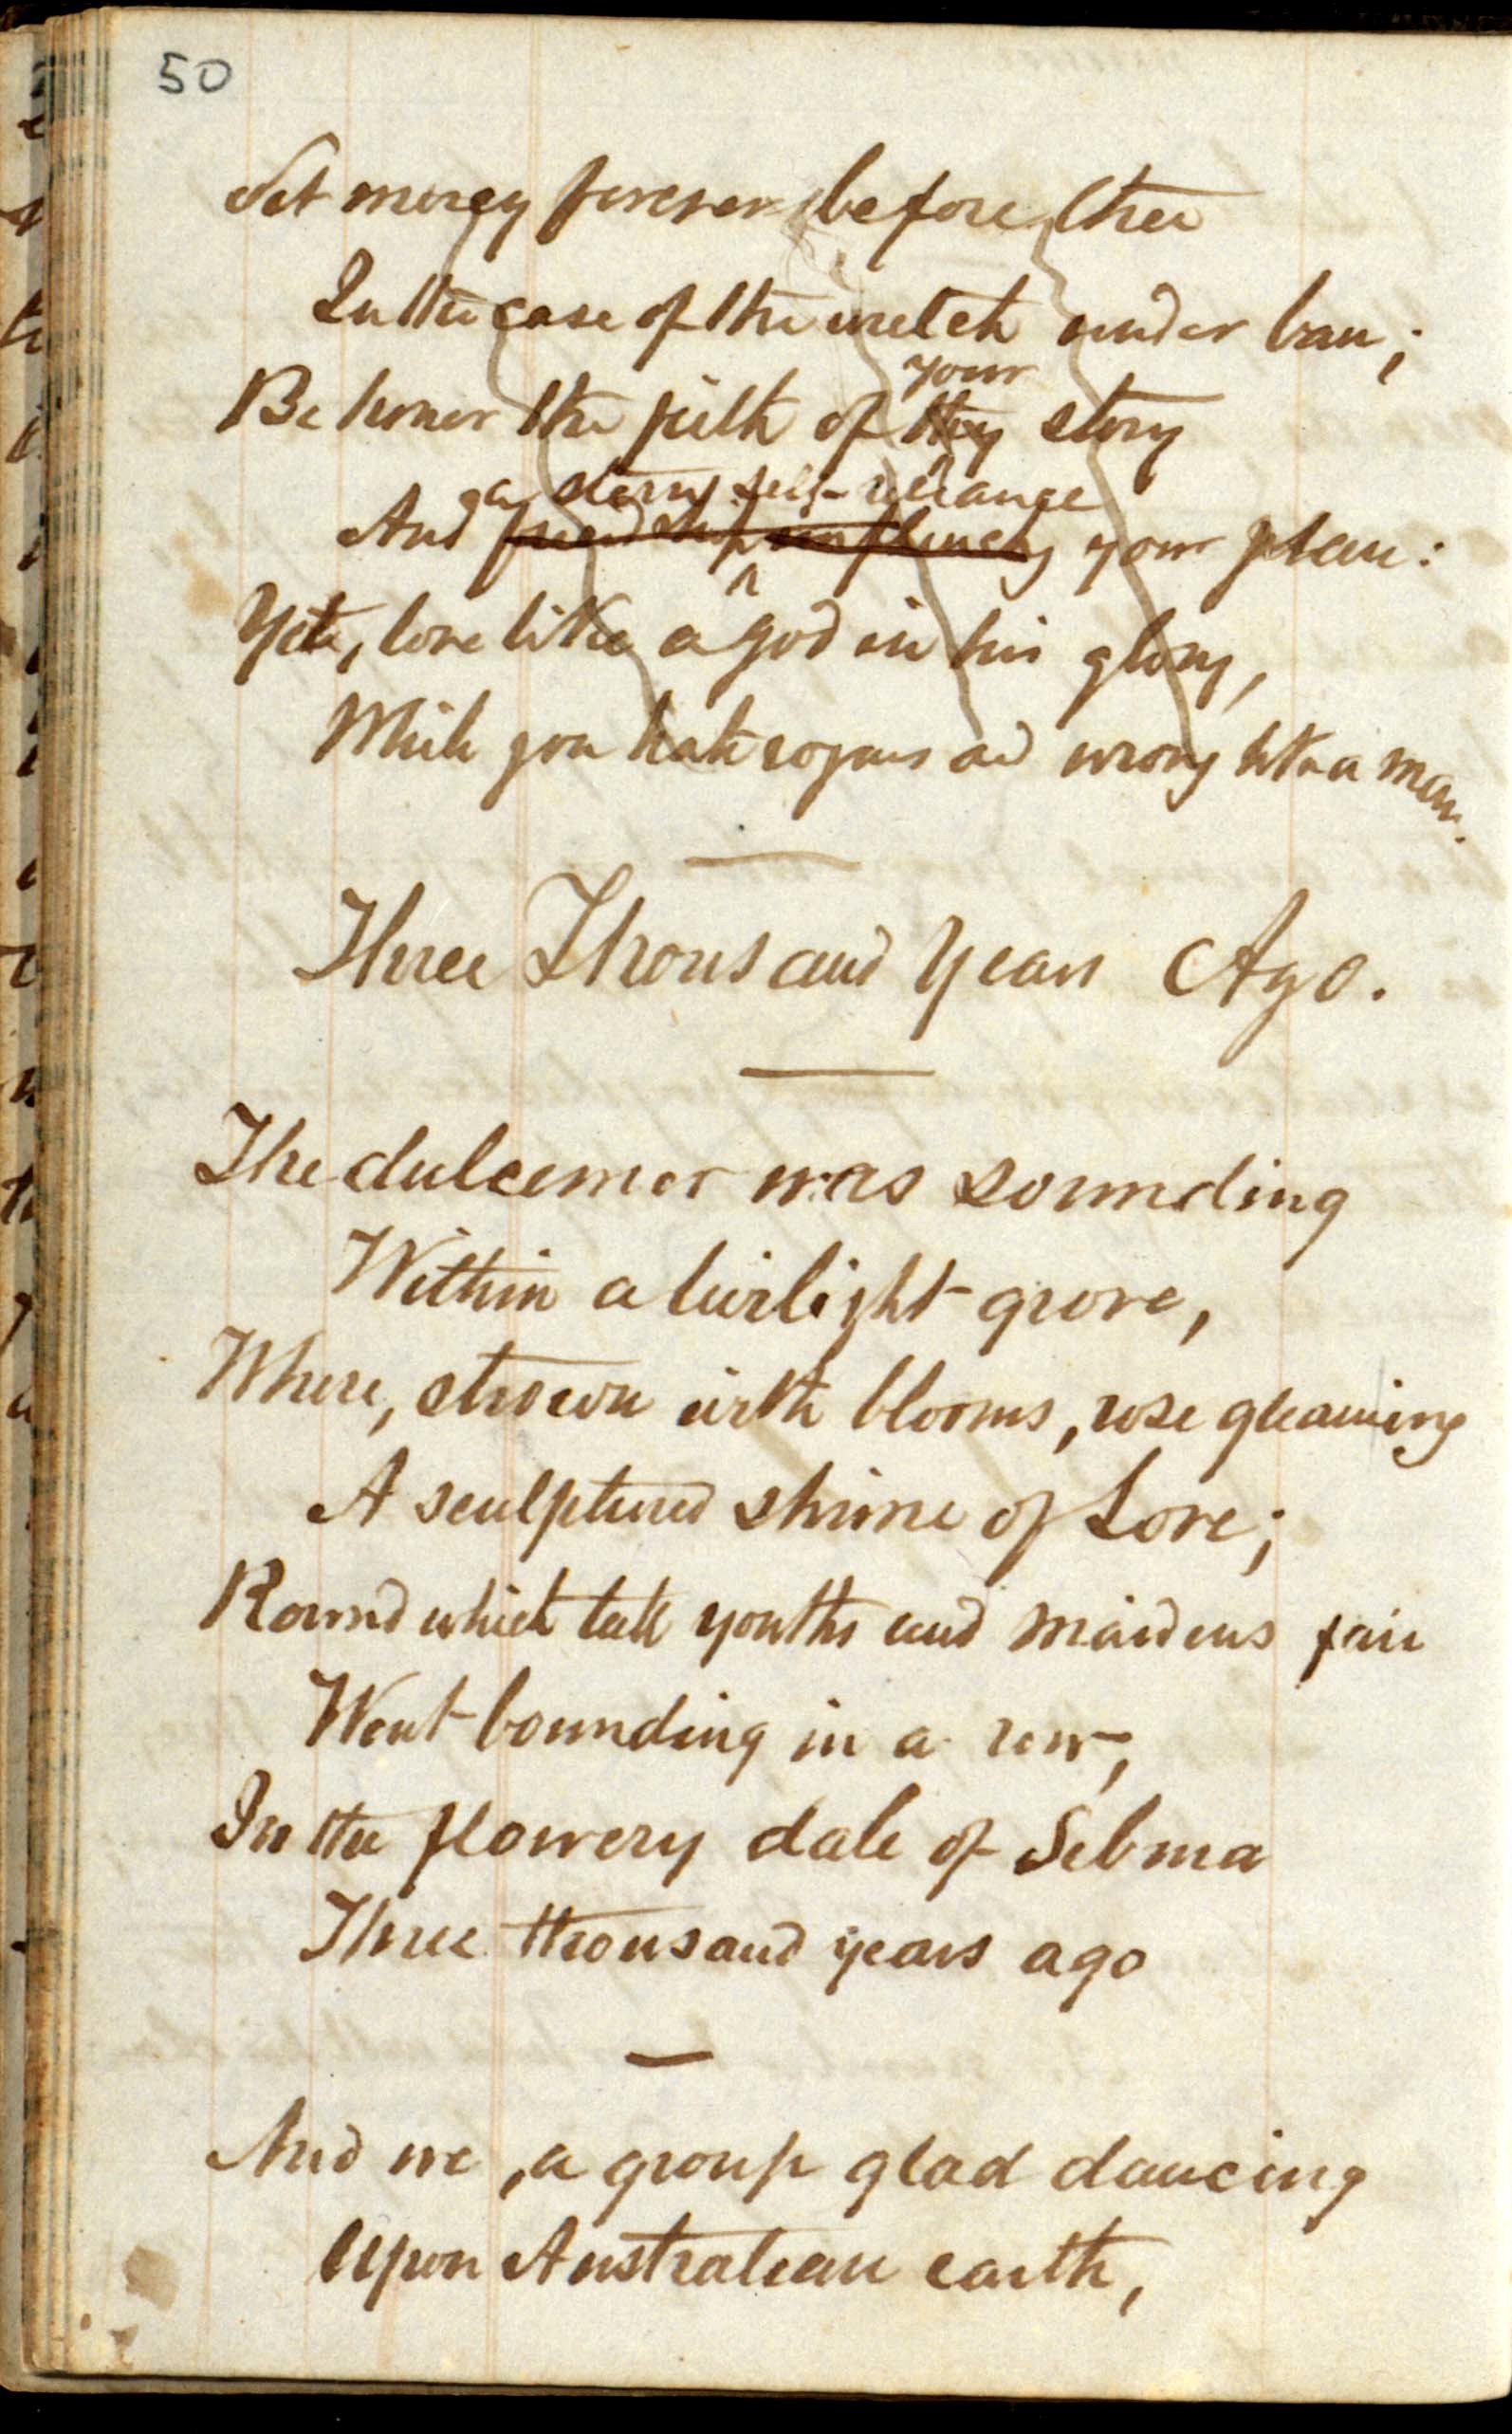 50
Set mercy forever before thee
In the case of the wretch under ban;
your
Be honor the pith of thy story
a stern self-reliance
And friendship your plan:
Yet, love like a god in his glory,
While you hate rogues and wrong like a man.
Three Thousand Years Ago.
The dulcemer was sounding
Within a twilight grove,
Where, strown with blooms, rose gleaming
A sculptured shrine of Love;
Round which tall youths and maidens fair
Went bounding in a row,
In the flowery dale of Sibma
Three thousand years ago
And we, a group glad dancing
Upon Australian earth,